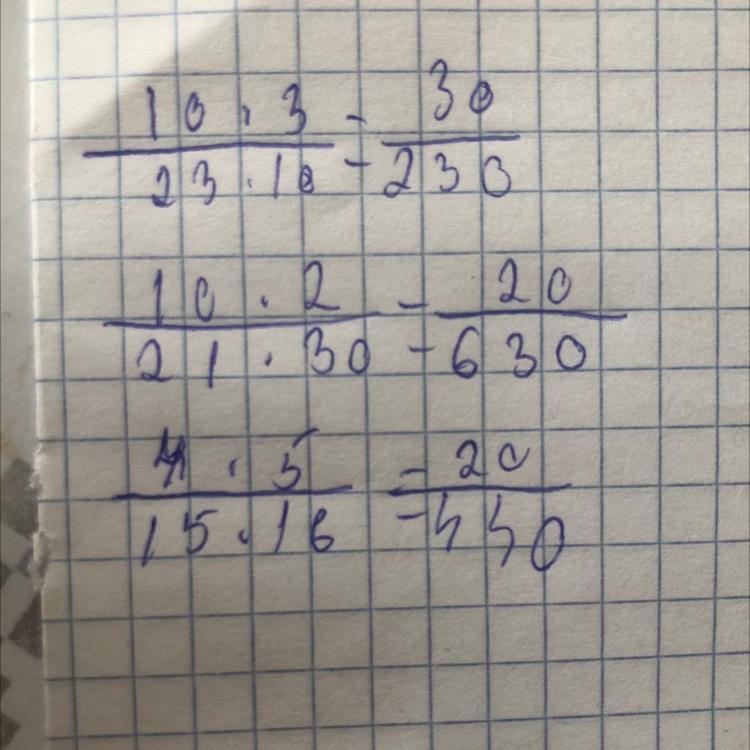 10 · 3 / 23 · 10 = 30 / 230
10 · 2 / 21 · 30 = 20 / 630
4 · 5 / 15 · 16 = 20 / 440